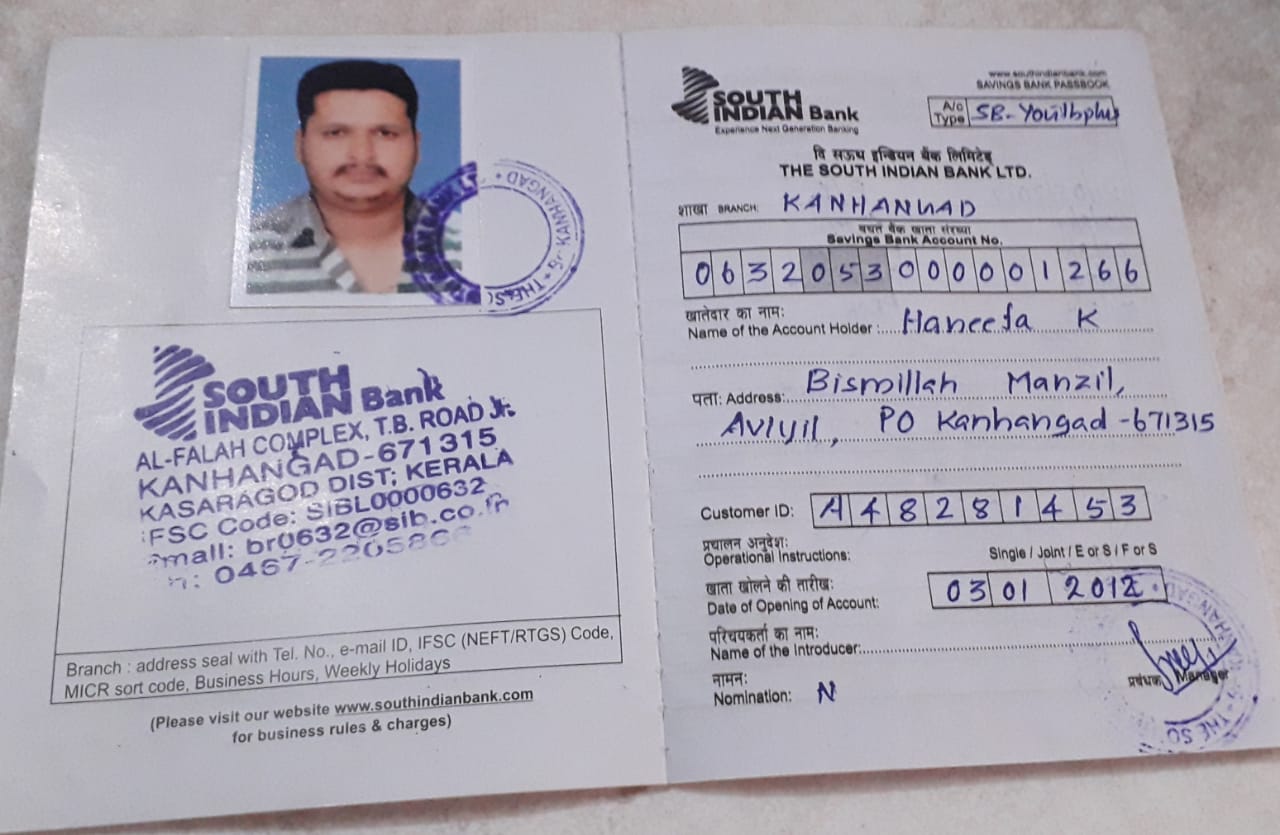 THE S
KANHANGAD
SOUTH
INDIAN Bank
AL-FALAH COMPLEX, T.B. ROAD Jr.
KANHANGAD-671315
KASARAGOD DIST; KERALA
IFSC Code: SIBL0000632
email: br0632@sib.co.in
0467-220586
Branch : address seal with Tel. No., e-mail ID, IFSC (NEFT/RTGS) Code,
MICR sort code, Business Hours, Weekly Holidays
(Please visit our website www.southindianbank.com
for business rules & charges)
SOUTH
INDIAN Bank
Experience Next Generation Banking
www.southindianbank.com
SAVINGS BANK PASSBOOK
A/c
Type SB-Youthplus
दि साउथ इन्डियन बैंक लिमिटेड्
THE SOUTH INDIAN BANK LTD.
शाखा BRANCH: KANHANGAD
बचत बैंक खाता संख्या
Savings Bank Account No.
0632053000001266
खातेदार का नाम:
Name of the Account Holder : Haneefa K
पता: Address: Bismillah Manzil,
Aviyil, PO Kanhangad - 671315
Customer ID: A48281453
प्रचालन अनुदेश:
Operational Instructions: Single / Joint / E or S / F or S
खाता खोलने की तारीख:
Date of Opening of Account: 03 01 2012
परिचयकर्ता का नाम:
Name of the Introducer:
प्रबंधक Manager
नामन:
Nomination: N
THE SO